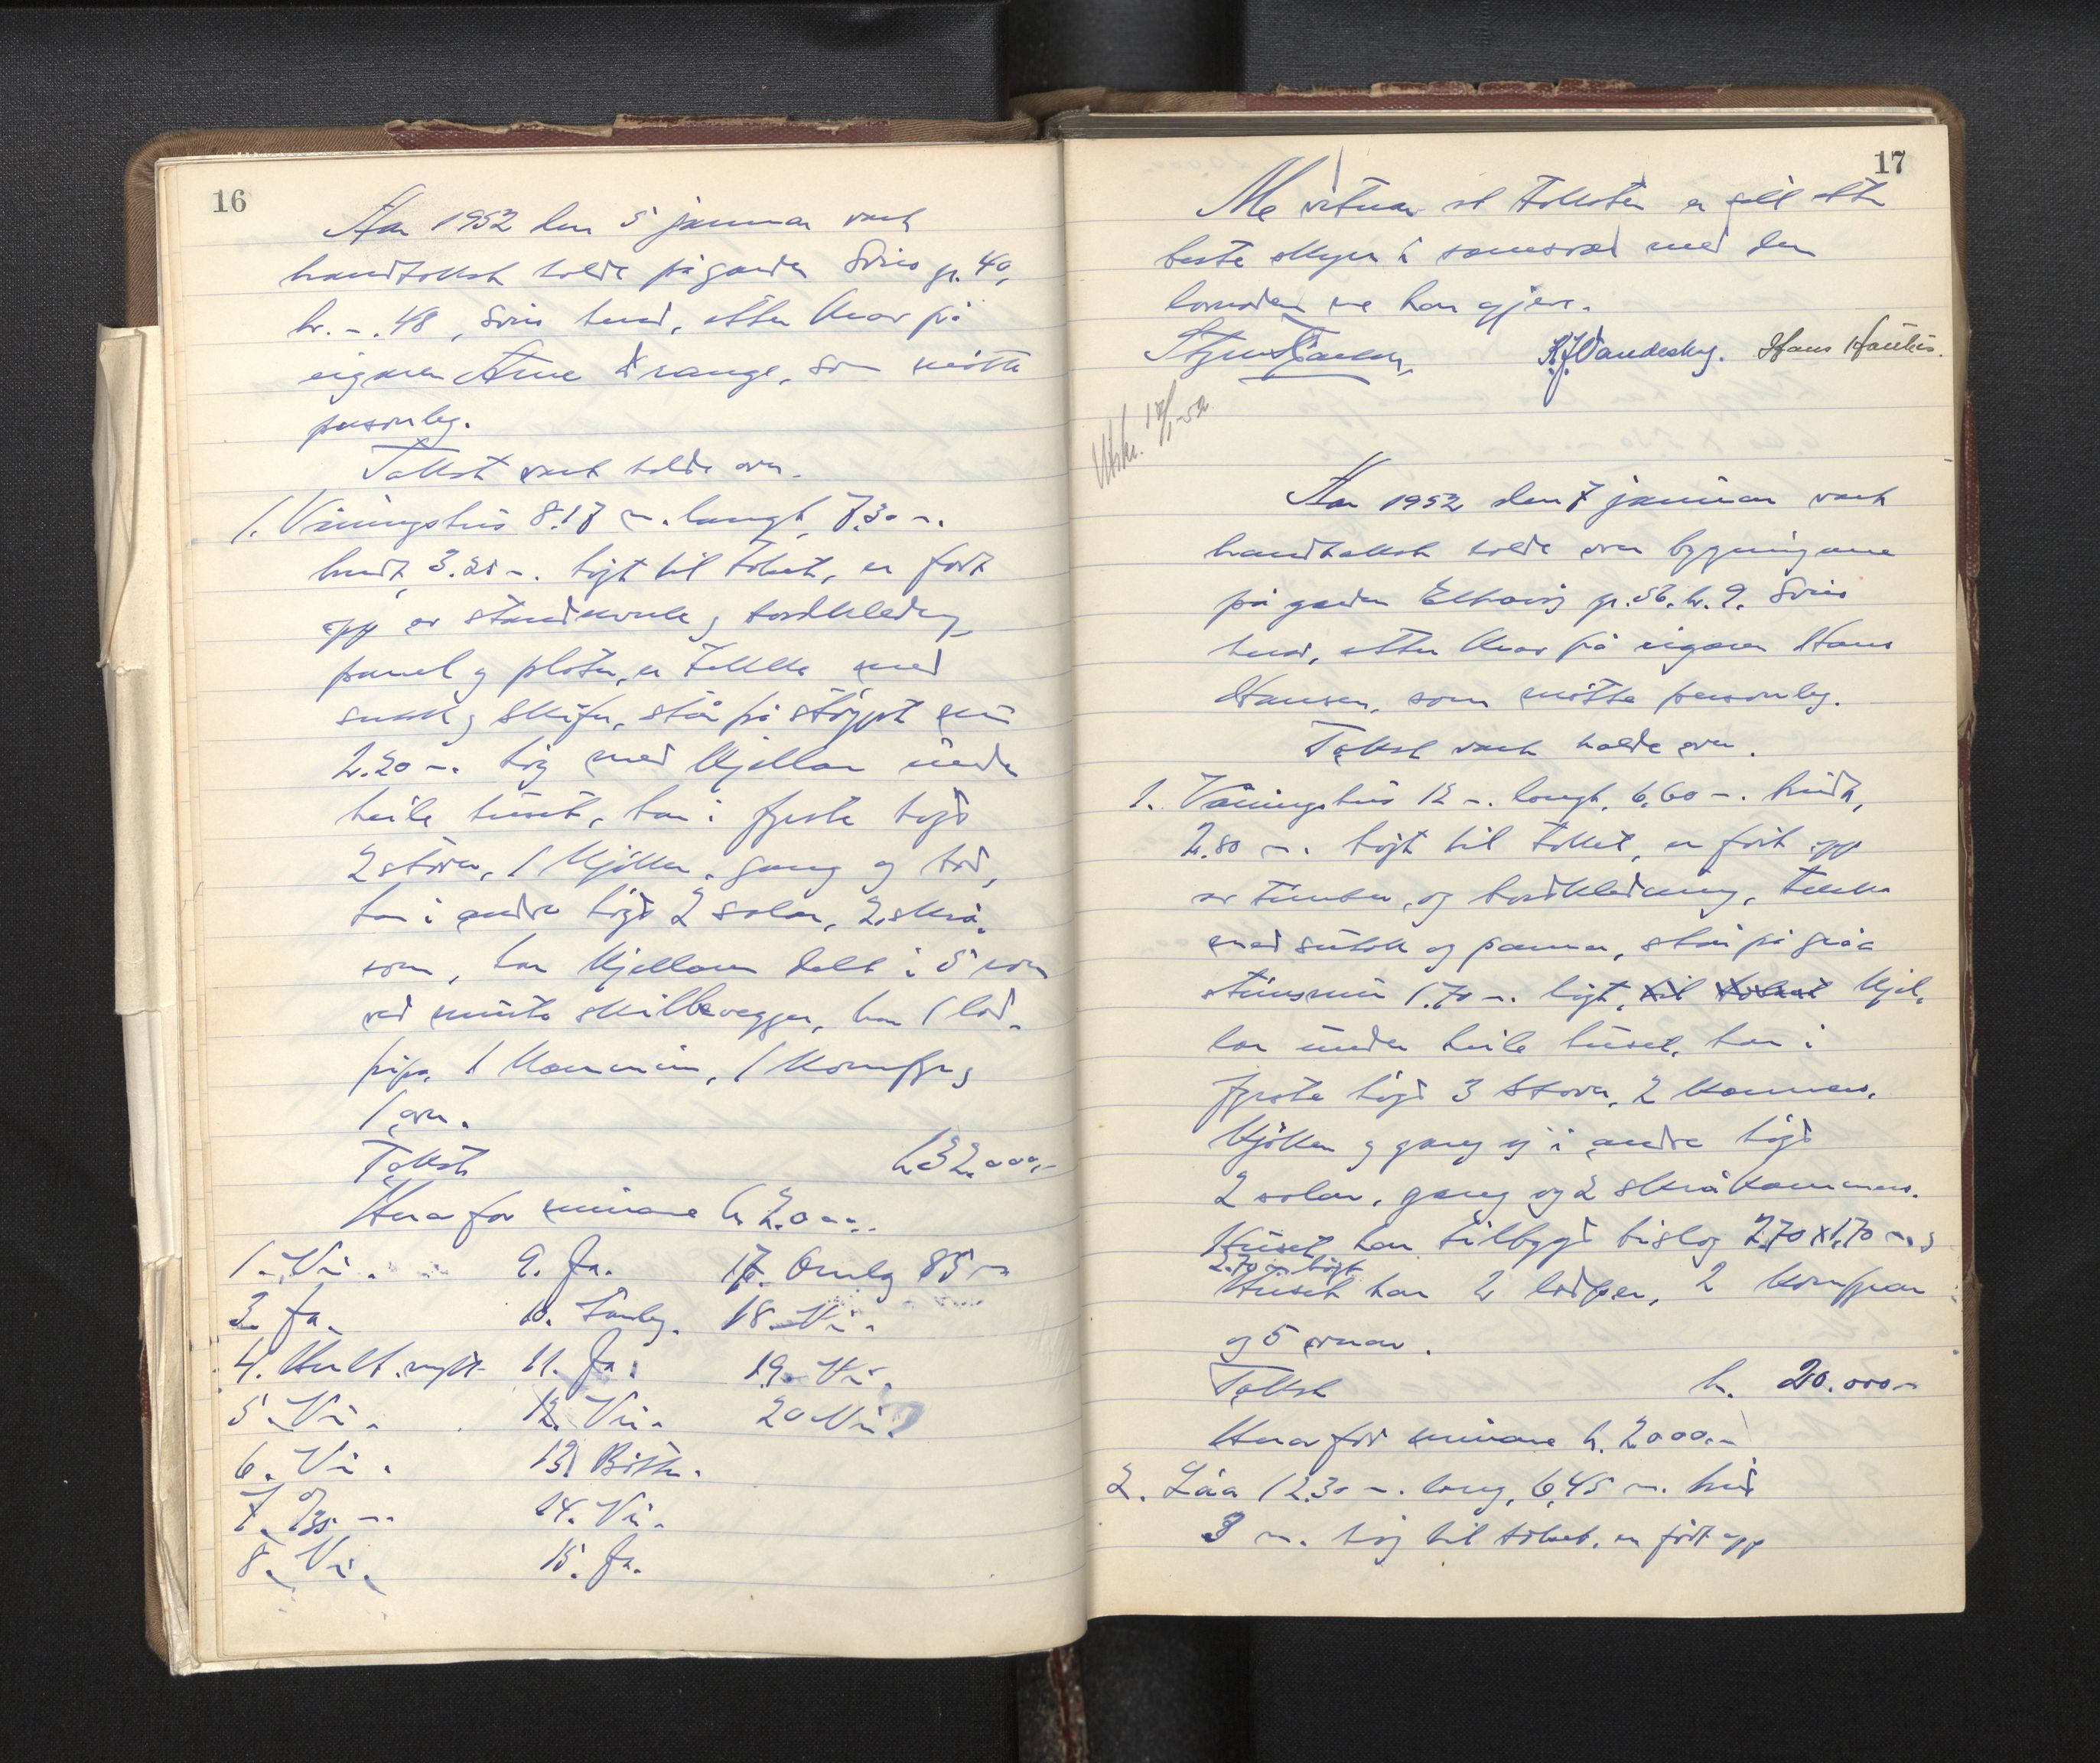 16
Aar 1952 den 5 januar vart
brandtakst halde på garden Svins gr. 40,
br. -. 48, Svins herad, etter krav på
eigaren Arne Drange, som møtte
personleg.
Takst vart halde over.
1. Våningshus 8.17 m. langt, 7.30 m.
bredt, 3.20 m. høgt til taket, er ført
opp av standverk og bordkledng
panel og plater, er tekka med
sutak og skifer, står på støypt mur
2.20 m. høg med kjellar under
heile huset, har i fyrste høgd
2 stover, 1 kjøken, gang og bad,
har i andre høgd 2 salar, 2 skrå-
rom, har kjellaren delt i 5 rom
ved murte skilleveggjer, har 1 lod-
pipa, 1 kammin, 1 komfyr og
1 omn.
Takst kr. 32.000,-
Herav for murane kr 2.000.
1. Nei.
3. Ja.
4. Heilt nytt.
5. Nei.
6. Nei.
7. 0/35 m.
8. Nei.
9. Ja.
10. Landleg.
11. Ja.
12. Nei.
13. Bøtter.
14. Nei.
15. Ja.
17. Omlag 85 m
18. Nei.
19. Nei.
20 Nei.
17
Me vitnar at taksten er gjell etter
beste skjyn i samsvar med den
lovnaden me har gjeve.
K. J. Vandeskog. Hans Hauhus.
Utskr. 17/1-52
Aar 1952 den 7 januar vart
brandtakst halde over bygningane
på garden gr. 56. br. 9. Svins
herad, etter krav på eigaren Hans
Hansen, som møtte personleg.
Takst vart halde over.
1. Våningshus 12 m. langt, 6,60 m. bredt,
2.80 m. høgt til taket, er ført opp
av timber, og bordkledning, tekka
med sutak og panner, står på gråa
steinsmur 1.70 m. høgt, til taket kjel-
lar under heile huset, har i
fyrste høgd 3 stover, 2 kammers,
kjøken og gang og i andre høgd
2 salar, gang og 2 skråkammers.
Huset har tilbygd bislag 2,70 x 1,70 m. og
2.70 m høgt
Huset har 2 lodper, 2 komfyrar
og 5 omnar.
Takst kr. 20.000.-
Herav for murane kr. 2000.-
2. Løa 12.30 m. lang, 6,45 m. breid
3 m. høg til taket, er ført opp